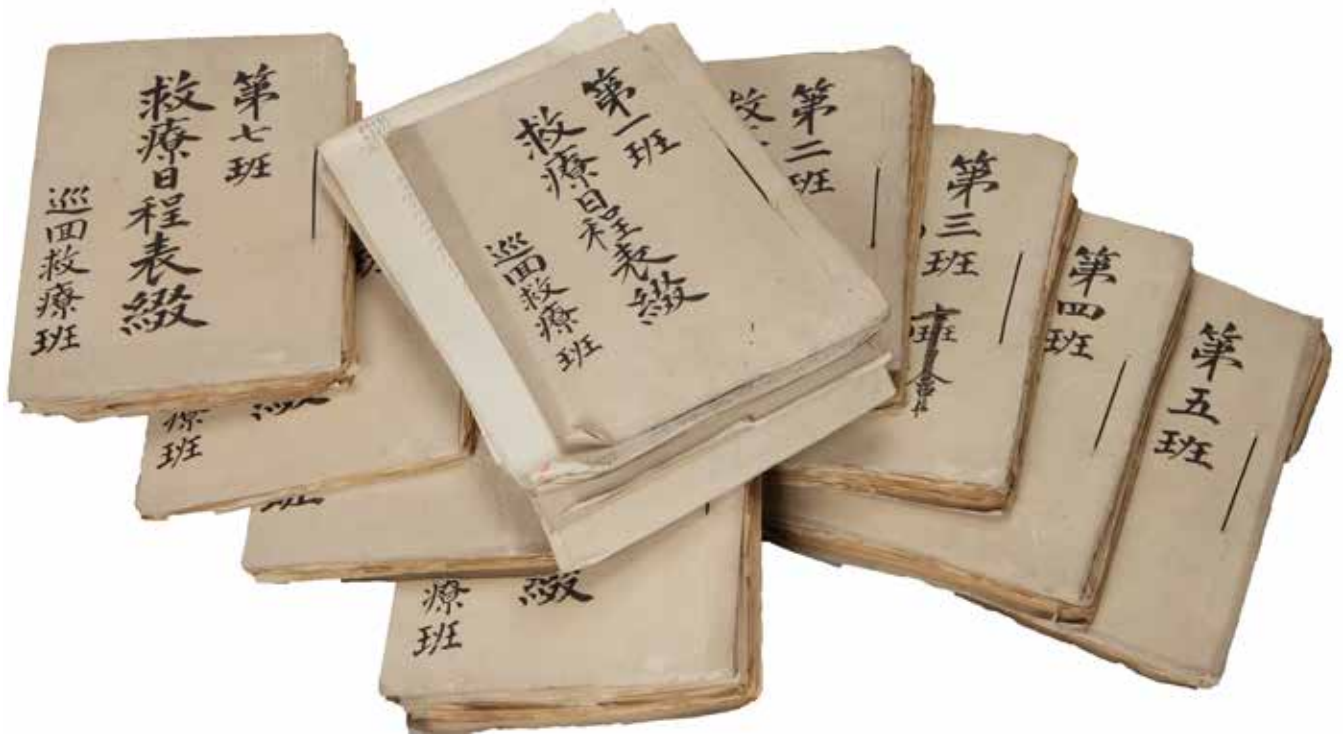 第七班
救療日程表綴
巡回救療班
第一班
救療日程表綴
巡回救療班
第二班
救
第三班
第四班
第五班
綴
療班
綴
療班